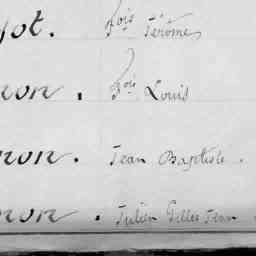 jot. fois Jérôme
non. fois Louis
non. Jean Baptiste.
non. Julien Gilles Jean